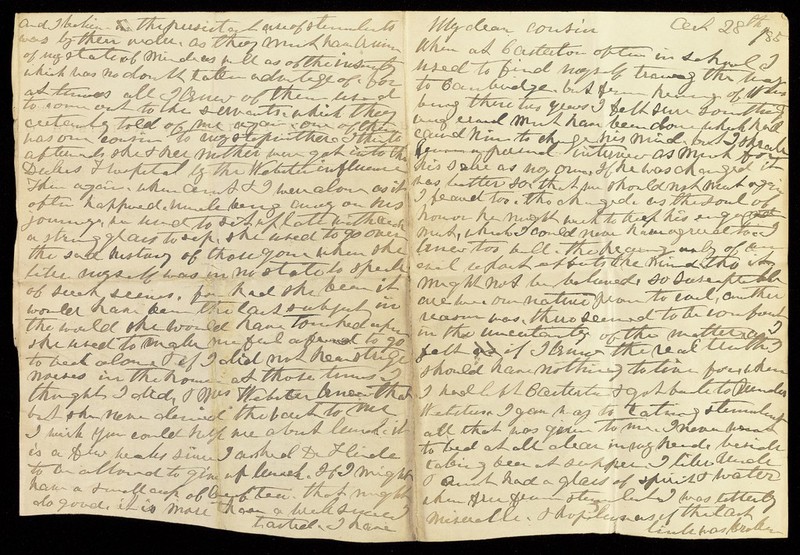 My dear cousin Oct 28th /85
When at Casterton often in school I
used to find myself tracing the way
to Cambridge. but from hearing of
being there two years I felt sure something
very cruel must have been done which had
caused him to change his mind, but I shrank
from a personal interview as much for
his sake as my own. If he was changed it
was better so. that we should not meet again
I feared too, tho changed, as the soul of
honor he might wish to keep his engagement
with, which I could never have agreed to. I
knew too well the hearing only of an
evil report
might not be believed. so susceptible
are we our nature prone to evil, another
reason was, there seemed to be comfort
in the uncertainty of the matter as I
felt as if I knew the real truth I
should have nothing to live for, when
I had left Casterton & got back to Uncle
Websters I gave way to taking stimulants
all that was given to me. I never went
to bed at all clear in my head, beside
taking beer at supper. I like Uncle
& Aunt had a glass of spirit & water
when free from stimulant I was utterly
miserable & hopeless as if the last
link was broken
and I believe in the persistent use of stimulants
was by their orders as they must have known
of my state of mind as well as of the insanity
which was no doubt taken advantage of. for
at times all I knew of them used
to come out to the servants. which they
certainly told of me again one of them
was our cousin
afterwards she & her mother were got into the
Hospital by the Webster influence
Then again when Aunt & I were alone as it
often happened, uncle being away on his
journeys, we used to sit up late with each
a strong glass to sip, she used to go over
the sad history of those gone when she
like myself was in no state to speak
of such scenes, for had she been it
would have been the last subject in
the world she would have touched upon
she used to make me feel afraid to go
to bed alone & if I did not hear strange
noises in the house at those times I
thought I did, & Mrs Webster knew that
but she never denied the fact to me
I wish you could help me about lunch. it
is a few weeks since I asked Dr
to be allowed to give up lunch. If I might
have a small cup of Beef tea. that might
do good. it is more than a week since I
tasted. I have